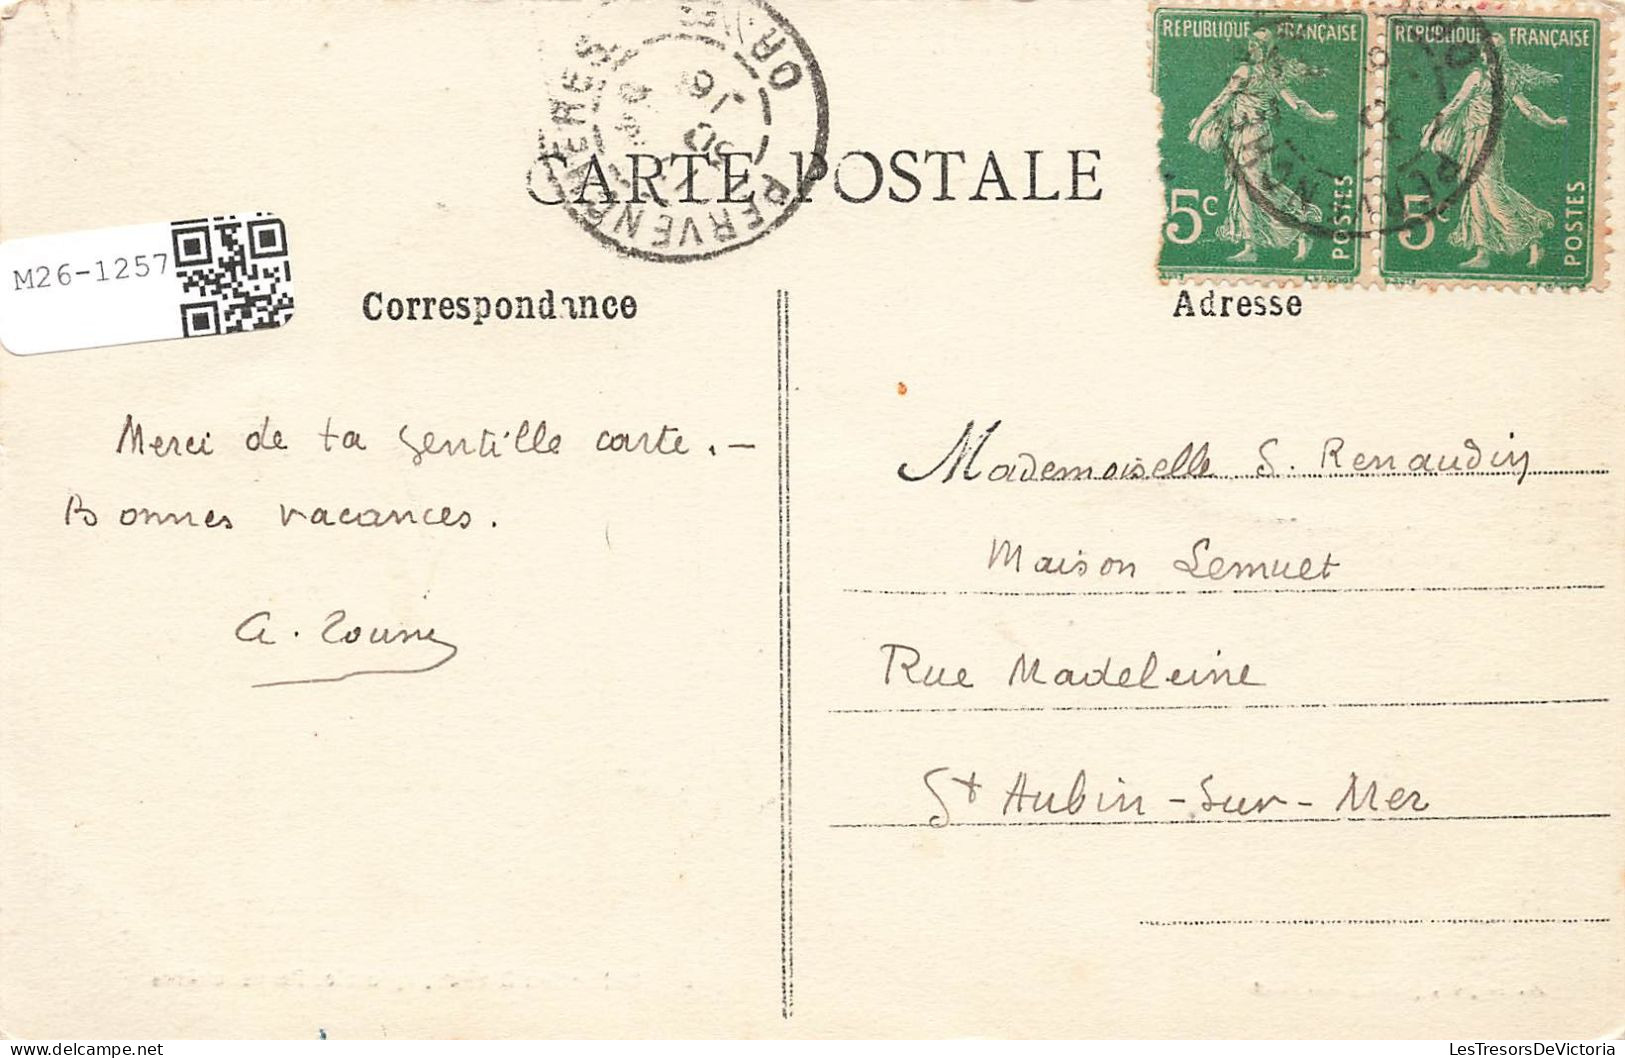 CARTE POSTALE
REPUBLIQUE FRANÇAISE
5c
POSTES
REPUBLIQUE FRANÇAISE
5c
POSTES
PERVENCHERES
ORNE
M26-1257
Correspondance
Adresse
Merci de ta gentille carte. —
Bonnes vacances.
Mademoiselle S. Renaudin
Maison Lemuet
Rue Madeleine
St Aubin - Sur - Mer
LesTresorsDeVictoria